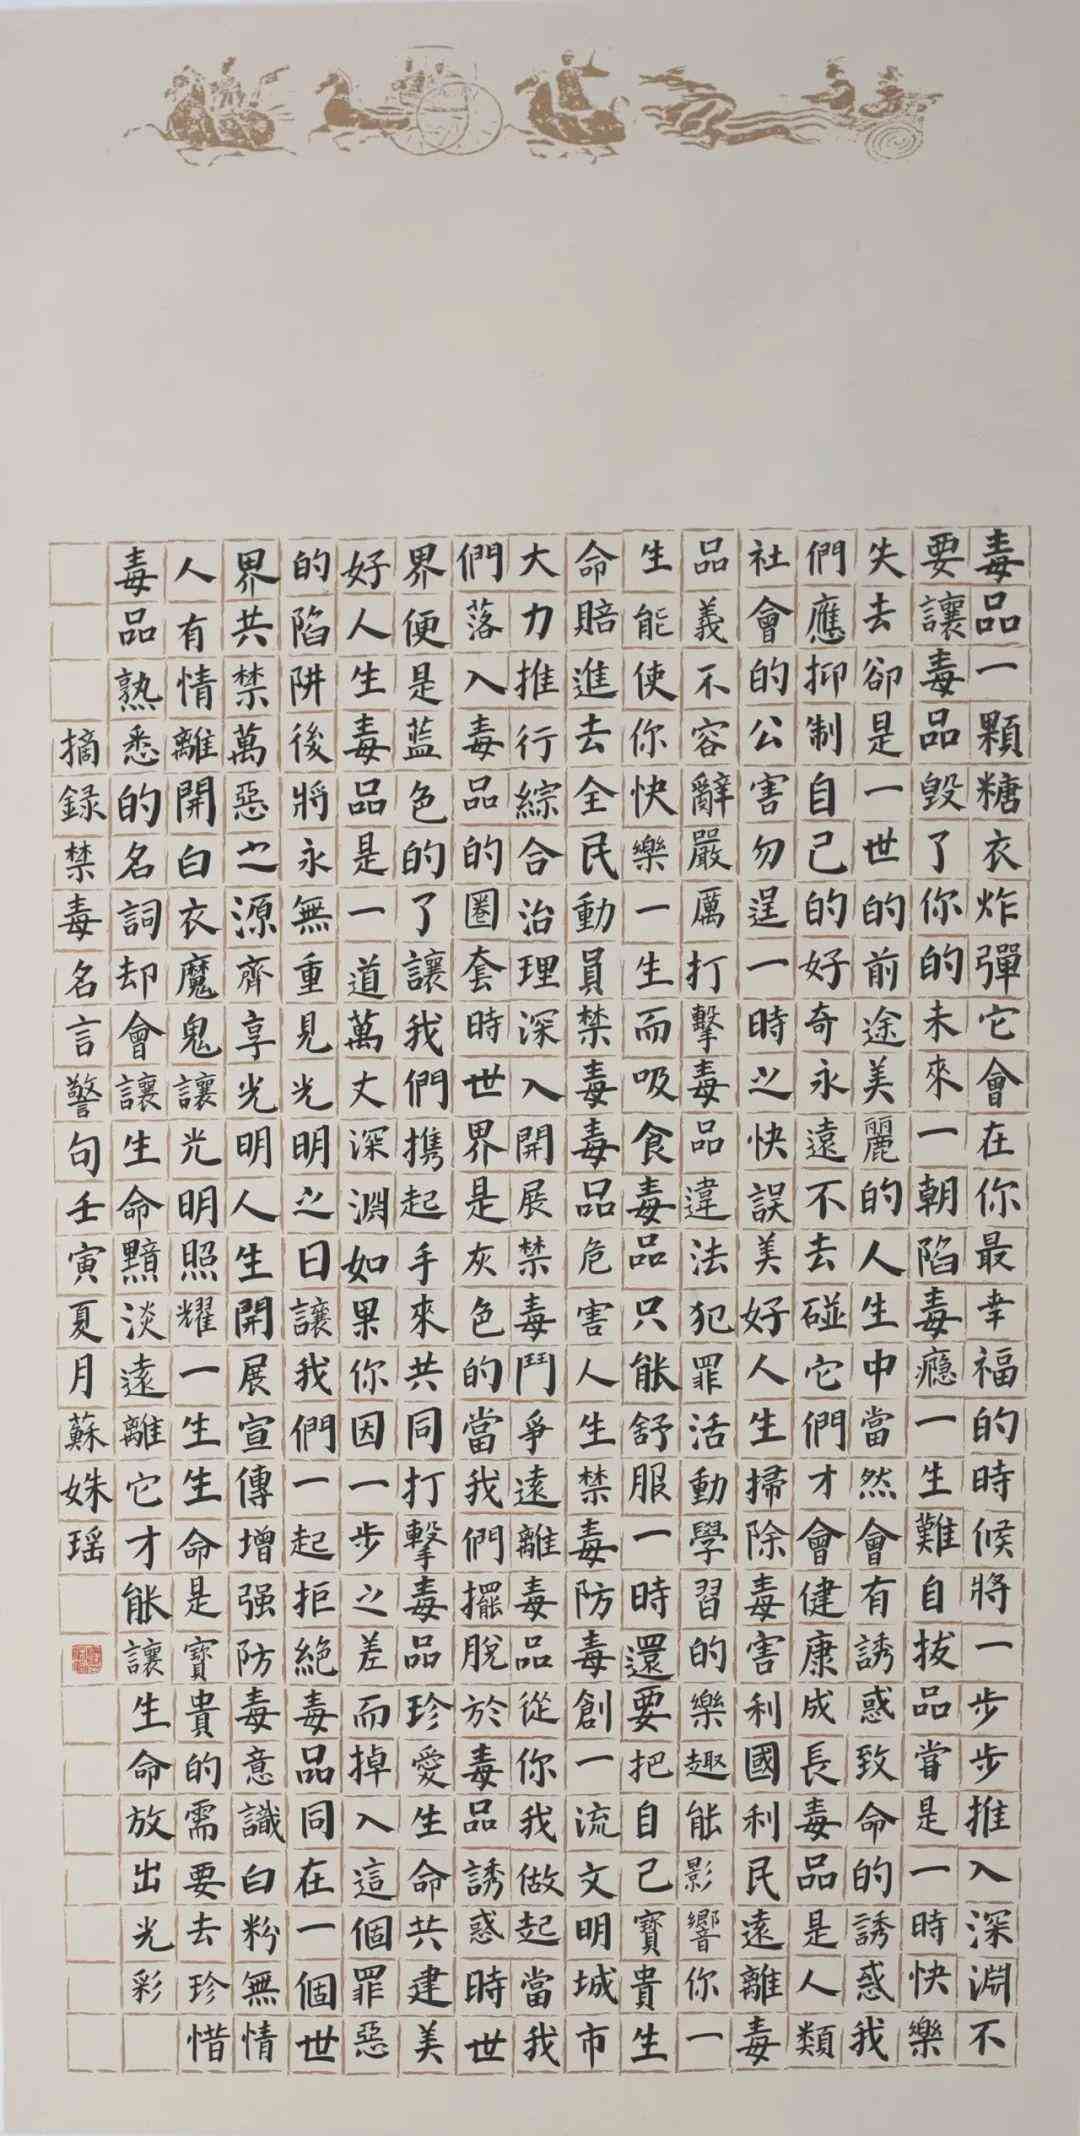 毒品一顆糖衣炸彈它會在你最幸福的時候將一步步推入深淵不
要讓毒品毀了你的未來一朝陷毒癮一生難自拔品嘗是一時快樂
失去卻是一世的前途美麗的人生中當然會有誘惑致命的誘惑我
們應抑制自己的好奇永遠不去碰它們才會健康成長毒品是人類
社會的公害勿逞一時之快誤美好人生掃除毒害利國利民遠離毒
品義不容辭嚴厲打擊毒品違法犯罪活動學習的樂趣能影響你一
生能使你快樂一生而吸食毒品只能舒服一時還要把自己寶貴生
命賠進去全民動員禁毒毒品危害人生禁毒防毒創一流文明城市
大力推行綜合治理深入開展禁毒鬥爭遠離毒品從你我做起當我
們落入毒品的圈套時世界是灰色的當我們擺脫於毒品誘惑時世
界便是藍色的了讓我們攜起手來共同打擊毒品珍愛生命共建美
好人生毒品是一道萬丈深淵如果你因一步之差而掉入這個罪惡
的陷阱後將永無重見光明之日讓我們一起拒絕毒品同在一個世
界共禁萬惡之源齊享光明人生開展宣傳增强防毒意識白粉無情
人有情離開白衣魔鬼讓光明照耀一生生命是寶貴的需要去珍惜
毒品熟悉的名詞却會讓生命黯淡遠離它才能讓生命放出光彩
摘録禁毒名言警句壬寅夏月蘇姝瑶